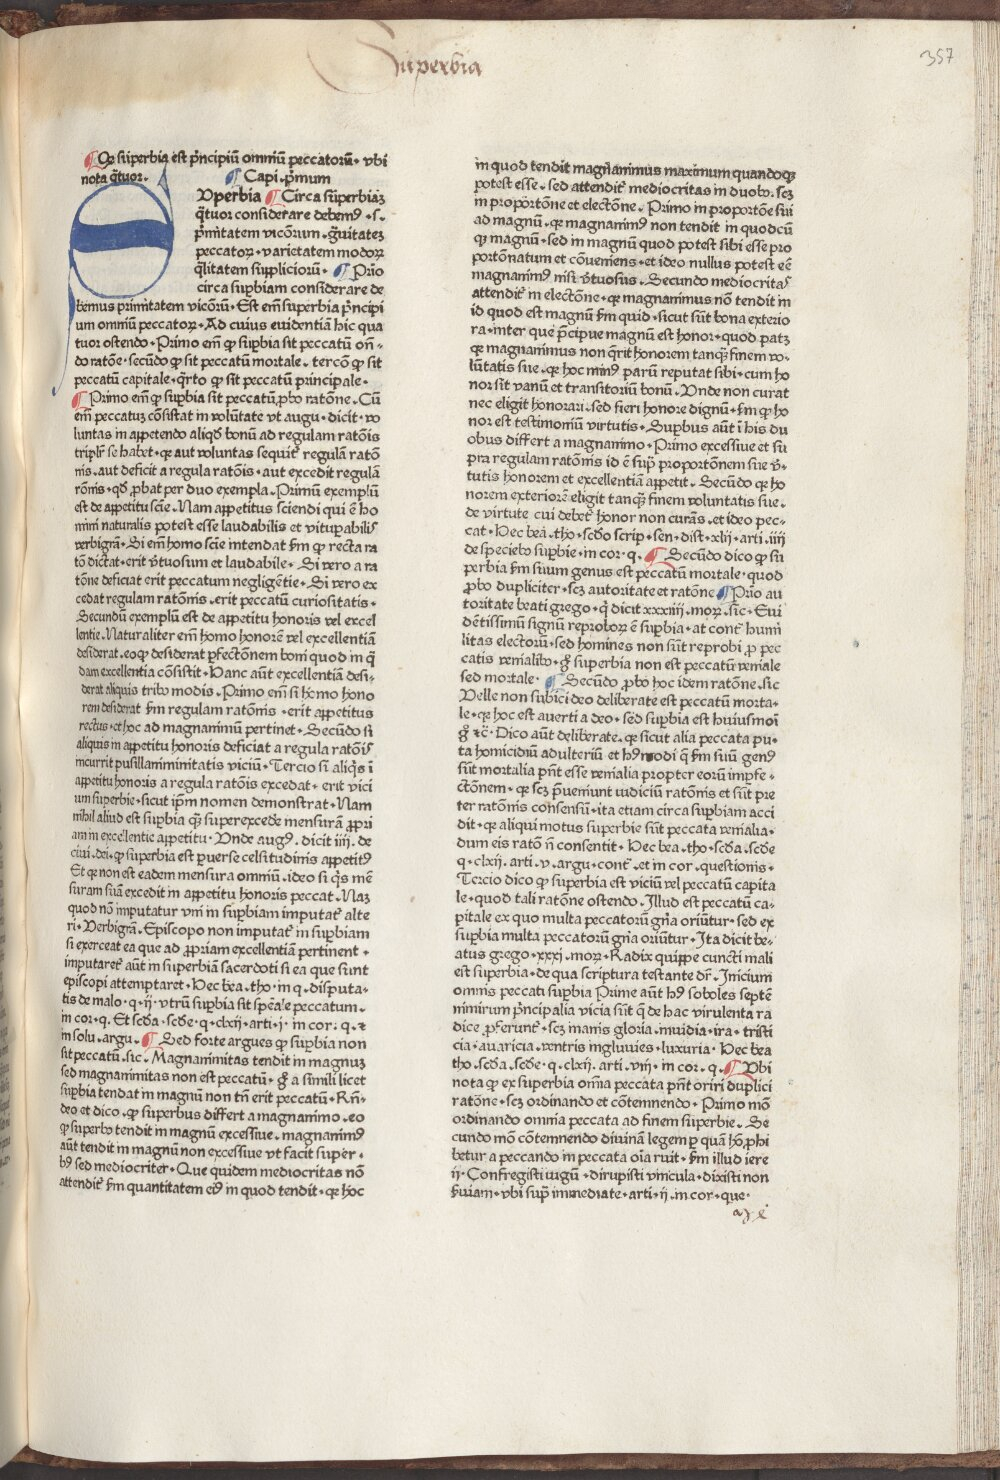 Superbia
357
¶ Qꝙ superbia est pͥncipiū omniū peccatorū · vbi
nota q̄tuor. ¶ Capi · pͥmum
SVperbia ¶ Circa superbiaꝫ
q̄tuor considerare debemꝰ · s·
pͥmitatem vicōrum · g̃uitateꝫ
peccatoꝝ · varietatem modoꝝ
q̄litatem suppliciorū · ¶ Prīo
circa suꝑbiam considerare de
bemus primitatem vicōrū · Est em̄ superbia pͥncipi
um omniū peccatoꝝ · Ad cuius euidentiā hic qua
tuor ostendo · Primo em̄ ꝙ suꝑbia sit peccatū oñ⸗
do ratōe · secūdo ꝙ sit peccatū mortale · tercō ꝙ sit
peccatū capitale · q̄rto ꝙ sit peccatū principale ·
¶ Primo em̄ ꝙ suꝑbia sit peccatū ꝓbo ratōne · Cū
em̄ peccatuꝫ cōsistat in volūtate vt augu · dicit · vo
luntas in appetendo aliqd̕ bonū ad regulam ratōis
triplr̕ se habet · qꝛ aut voluntas sequit᷑ regulā ratō
nis · aut deficit a regula ratōis · aut excedit regulā
rōnis · qd̕ ꝓbat per duo exempla · Primū exemplū
est de appetitu scīe · Nam appetitus sciendi qui ē ho
mini naturalis potest esse laudabilis et vituꝑabilis
verbigrā · Si em̄ homo scīe intendat fm̄ ꝙ recta ra
tō dictat · erit v̕tuosum et laudabile · Si vero a ra
tōne deficiat erit peccatum negligētie · Si vero ex
cedat regulam ratōnis · erit peccatū curiositatis ·
Secundū exemplū est de appetitu honoris vel excel
lentie · Naturaliter em̄ homo honorē vel excellentiā
desiderat · eoꝙ desiderat ꝑfectōnem boni quod in q̄
dam excellentia cōsistit · Hanc aūt excellentiā desi⸗
derat aliquis tribo modis · Primo em̄ si homo hono
rem desiderat fm̄ regulam ratōnis · erit appetitus
rectus · et hoc ad magnanimū pertinet · Secūdo si
aliquis in appetitu honoris deficiat a regula ratōis
incurrit pusillanimitatis viciū · Tercio si aliqͥs ī
appetitu honoris a regula ratōis excedat · erit vici
um superbie · sicut ip̄m nomen demonstrat · Nam
nihil aliud est suꝑbia qͣꝫ superexcede mensurā ꝓpri
am in excelentie appetitu · Vnde augꝰ · dicit iiij · de
ciui · dei · ꝙ superbia est ꝑuerse celsitudinis appetitꝰ
Et qꝛ non est eadem mensura omniū · ideo si qͥs mē
suram suā excedit in appetitu honoris peccat · Naꝫ
quod nō imputatur vni in suꝑbiam imputat᷑ alte
ri · Verbigrā · Episcopo non imputat᷑ in suꝑbiam
si exerceat ea que ad ꝓpriam excellentiā pertinent ·
imputaret᷑ aūt in superbiā sacerdoti si ea que sunt
episcopi attemptaret · Hec bea · tho · in q · disputa⸗
tis de malo · q · ij · vtrū suꝑbia sit sꝑēale peccatum ·
in cor · q · Et scd̄a · scd̄e · q · clxij · arti · j · in cor · q · ⁊
in solu · argu · ¶ Sed forte argues ꝙ suꝑbia non
sit peccatū · sic · Magnanimitas tendit in magnuꝫ
sed magnanimitas non est peccatū · g̊ a simili licet
suꝑbia tendat in magnū non tn̄ erit peccatū · Rñ⸗
deo et dico · ꝙ superbus differt a magnanimo · eo
ꝙ superbꝰ tendit in magnū excessiue · magnanimꝰ
aūt tendit in magnū non excessiue vt facit super⸗
bꝰ sed mediocriter · Que quidem mediocritas nō
attendit᷑ fm̄ quantitatem eiꝰ in quod tendit · qꝛ hoc
in quod tendit magnanimus maximum quandoqꝫ
potest esse · sed attendit᷑ mediocritas in duobꝰ · scꝫ
in proportōne et electōne · Primo in proportōe sui
ad magnū · qꝛ magnanimꝰ non tendit in quodcū
qꝫ magnū · sed in magnū quod potest sibi esse pro
portōnatum et cōueniens · et ideo nullus potest eē
magnanimꝰ nisi v̕tuosus · Secundo mediocritas
attendit᷑ in electōne · qꝛ magnanimus nō tendit in
id quod est magnū fm̄ quid · sicut sūt bona exterio
ra · inter que pͥncipue magnū est honor · quod patꝫ
qꝛ magnanimus non q̄rit honorem tanqͣꝫ finem vo⸗
lūtatis sue · qꝛ hoc minꝰ parū reputat sibi · cum ho
nor sit vanū et transitoriū bonū · Vnde non curat
nec eligit honorari · sed fieri honore dignū · fm̄ ꝙ ho
nor est testimoniū virtutis · Suꝑbus aūt ī his du
obus differt a magnanimo · Primo excessiue et su
pra regulam ratōnis id ē supͣ proportōnem sue v̕⸗
tutis honorem et excellentiā appetit · Secūdo qꝛ ho
norem exteriorē eligit tanqͣꝫ finem voluntatis sue ·
de virtute cui debet᷑ honor non curās · et ideo pec⸗
cat · Hec bea · tho · scd̄o scrip · sen · dist · xlij · arti · iiij
de speciebꝰ suꝑbie · in cor · q · ¶ Secūdo dico ꝙ su
perbia fm̄ suum genus est peccatū mortale · quod
ꝓbo dupliciter · scꝫ autoritate et ratōne ¶ Prīo au
toritate beati grego · qͥ dicit xxxiiij · moꝝ · sic · Eui
dētissimū signū reproboꝝ ē suꝑbia · at cont᷑ humi
litas electorū · sed homines non sūt reprobi ꝓ pec
catis venialibꝰ · g̊ superbia non est peccatū veniale
sed mortale · ¶ Secūdo ꝓbo hoc idem ratōne · sic
Velle non subici deo deliberate est peccatū morta⸗
le · qꝛ hoc est auerti a deo · sed suꝑbia est huiusmōi
g̊ ⁊c̄ · Dico aūt deliberate · qꝛ sicut alia peccata pu⸗
ta homicidiū adulteriū et hꝰmodi qͥ fm̄ suū genꝰ
sūt mortalia pn̄t esse venialia propter eorū imꝑfe⸗
ctōnem · qꝛ scꝫ p̄ueniunt iudiciū ratōnis et sūt pre
ter ratōnis consensū · ita etiam circa suꝑbiam acci
dit · qꝛ aliqui motus superbie sūt peccata venialia ·
dum eis ratō n̄ consentit · Hec bea · tho · scd̄a · scd̄e
q · clxij · arti · v · argu · cont᷑ · et in cor · questionis ·
Tercio dico ꝙ superbia est viciū vel peccatū capita
le · quod tali ratōne ostendo · Illud est peccatū ca⸗
pitale ex quo multa peccatorū gn̄a oriūtur · sed ex
suꝑbia multa peccatorū gn̄a oriūtur · Ita dicit be⸗
atus grego · xxxj · moꝝ · Radix quippe cuncti mali
est superbia · de qua scriptura testante dr̄ · Inicium
omnis peccati suꝑbia Prime aūt hꝰ soboles septē
nimirum pͥncipalia vicia sūt q̄ de hac virulenta ra
dice ꝓferunt᷑ · scꝫ inanis gloria · inuidia · ira · tristi
cia · auaricia · ventris ingluuies · luxuria · Hec bea
tho · scd̄a · scd̄e · q · clxij · arti · viij · in cor · q · ¶ Vbi
nota ꝙ ex superbia omīa peccata pn̄t oriri duplici
ratōne · scꝫ ordinando et cōtemnendo · Primo mō
ordinando omnia peccata ad finem superbie · Se
cundo mō cōtemnendo diuinā legem ꝑ quā hō ꝓhi
betur a peccando in peccata oīa ruit · fm̄ illud iere
ij · Confregisti iugū · dirupisti vincula · dixisti non
ẜuiam · vbi supͣ immediate · arti · ij · in cor · que·